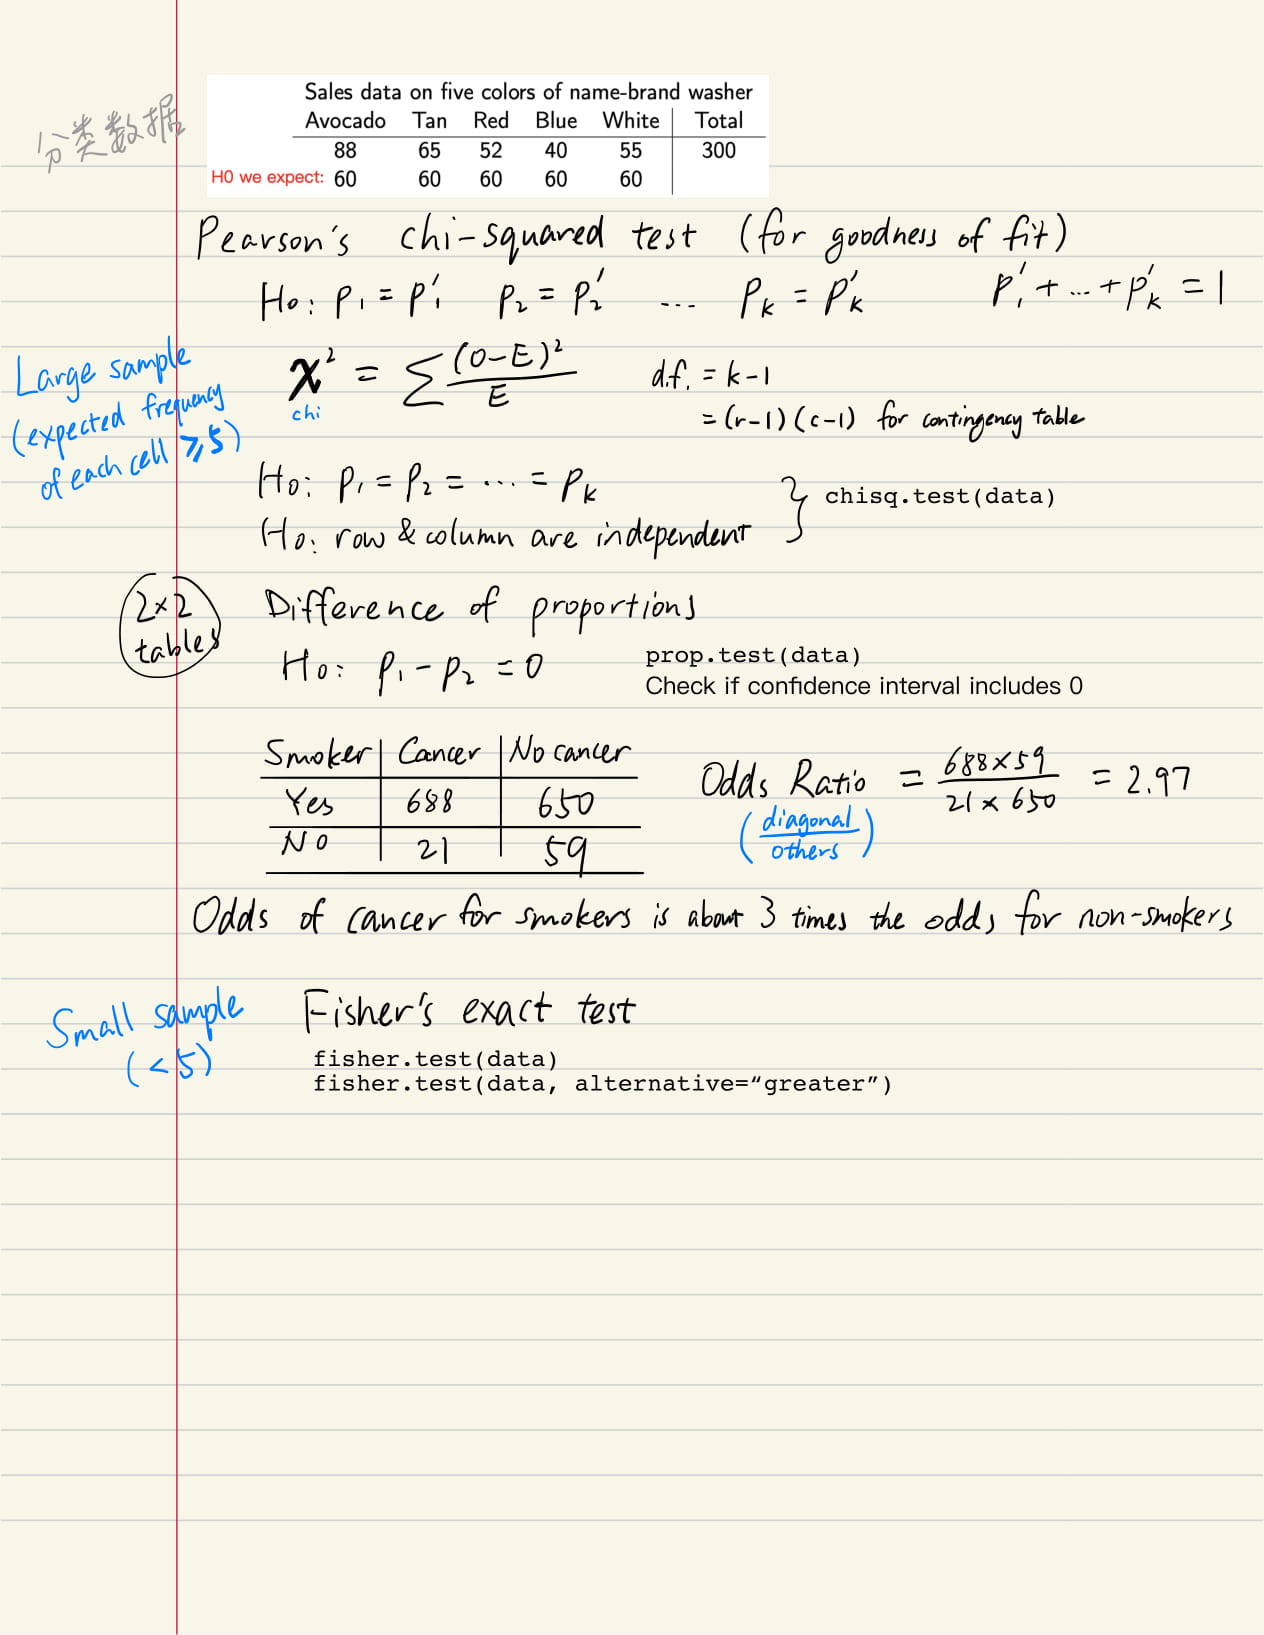 分类数据
Sales data on five colors of name-brand washer
Avocado Tan Red Blue White Total
88 65 52 40 55 300
H0 we expect: 60 60 60 60 60
Pearson's chi-squared test (for goodness of fit)
H₀: p₁ = p₁' p₂ = p₂' ... pₖ = pₖ' p₁' + ... + pₖ' = 1
Large sample
(expected frequency
of each cell ⩾5)
χ² = ∑ (O-E)²/E d.f. = k-1
chi
= (r-1)(c-1) for contingency table
H₀: p₁ = p₂ = ... = pₖ
H₀: row & column are independent
chisq.test(data)
2×2
tables
Difference of proportions
H₀: p₁ - p₂ = 0
prop.test(data)
Check if confidence interval includes 0
Smoker Cancer No cancer
Yes 688 650
No 21 59
Odds Ratio = 688×59 / 21×650 = 2.97
(diagonal / others)
Odds of cancer for smokers is about 3 times the odds for non-smokers
Small sample
(<5)
Fisher's exact test
fisher.test(data)
fisher.test(data, alternative=“greater”)